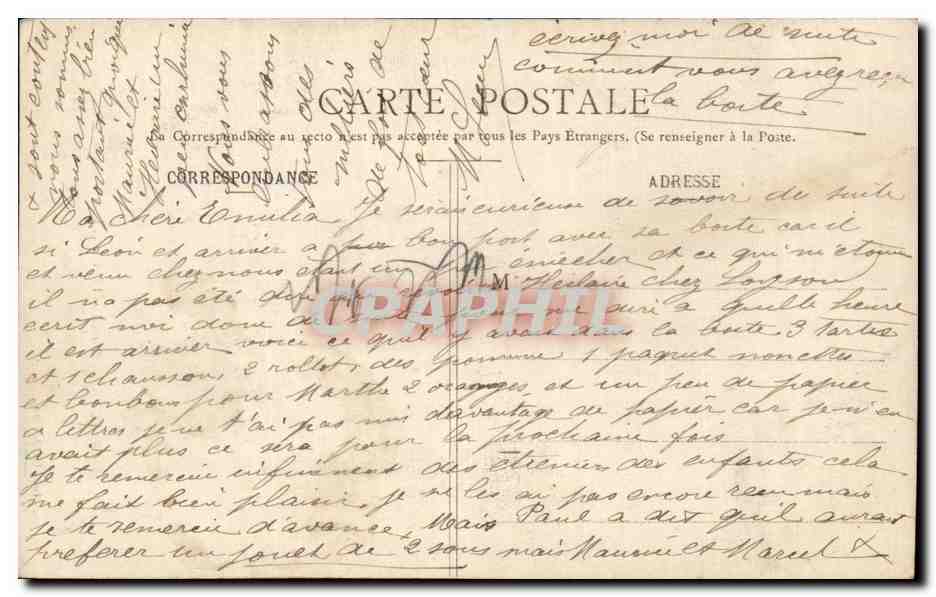 écrivez moi de suite
comment vous avez reçu
la boite
CARTE POSTALE
La Correspondance au recto n'est pas acceptée par tous les Pays Etrangers. (Se renseigner à la Poste.
CORRESPONDANCE
ADRESSE
Ma chère Emilia, Je serais curieuse de savoir de suite
si Léon et arriver a bon port avec sa boite car il
et venu chez nous étant un peu emécher et ce qui m'étonne
il n'a pas été M Heilaire chez Loyson
écrit moi donc de suite me dire a quelle heure
il est arriver voici ce qu'il y avait dans la boite 3 tartes
et 1 chausson, 2 rollots, des pomme 1 paquet nonettes
et bonbons pour Marthe 2 oranges et un peu de papier
a lettres je ne t'ai pas mis davantage de papier car je n'en
avait plus ce sera pour la prochaine fois
Je te remercie infiniment des étrennes des enfants cela
me fait bien plaisir, je ne les ai pas encore reçu mais
je te remercie d'avance, Mais Paul a dit qu'il aurait
preferer un jouet de 2 sous mais Maurice et Marcel x
x sont contents
nous sommes
tous assez bien
portant quoique
Maurice et
Hedwige
enrhumé
Nous vous
embrassons
tous des
milliers
de fois de
ta soeur
CPAPHIL